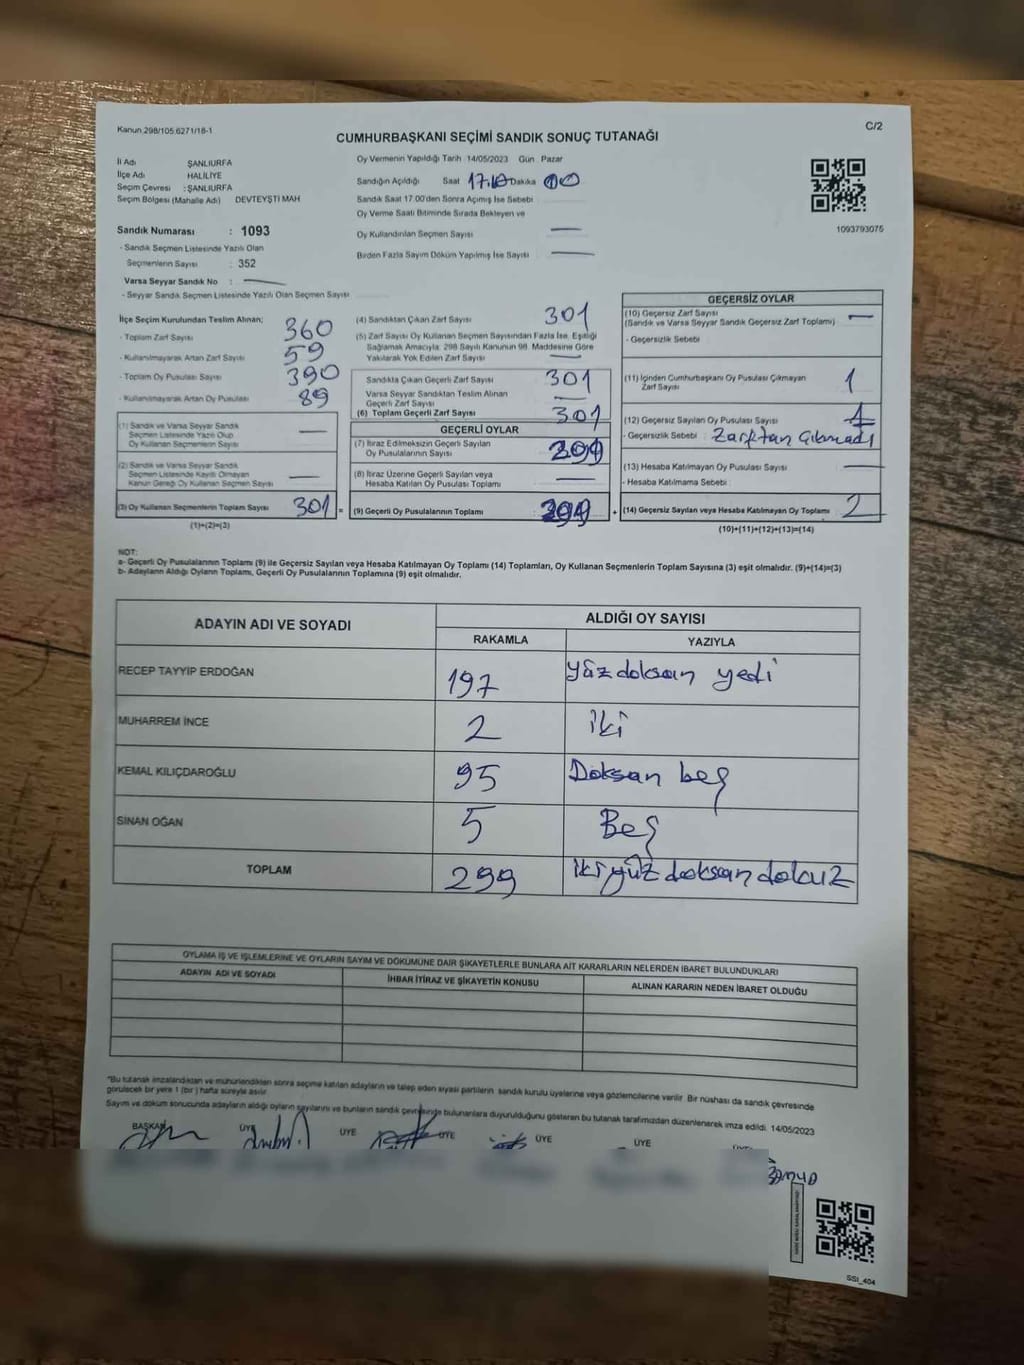 Kanun.298/105.6271/18-1
C/2
CUMHURBAŞKANI SEÇİMİ SANDIK SONUÇ TUTANAĞI
İl Adı ŞANLIURFA
İlçe Adı HALİLİYE
Seçim Çevresi : ŞANLIURFA
Seçim Bölgesi (Mahalle Adı) DEVTEYŞTİ MAH
Sandık Numarası : 1093
- Sandık Seçmen Listesinde Yazılı Olan
Seçmenlerin Sayısı : 352
Varsa Seyyar Sandık No : —
- Seyyar Sandık Seçmen Listesinde Yazılı Olan Seçmen Sayısı
Oy Vermenin Yapıldığı Tarih 14/05/2023 Gün Pazar
Sandığın Açıldığı Saat 17.10 Dakika 00
Sandık Saat 17.00'den Sonra Açımış İse Sebebi
Oy Verme Saati Bitiminde Sırada Bekleyen ve
Oy Kullandırılan Seçmen Sayısı —
Birden Fazla Sayım Döküm Yapılmış İse Sayısı —
1093793075
İlçe Seçim Kurulundan Teslim Alınan;
- Toplam Zarf Sayısı 360
- Kullanılmayarak Artan Zarf Sayısı 59
- Toplam Oy Pusulası Sayısı 390
- Kullanılmayarak Artan Oy Pusulası 89
(1) Sandık ve Varsa Seyyar Sandık
Seçmen Listesinde Yazılı Olup
Oy Kullanan Seçmenlerin Sayısı —
(2) Sandık ve Varsa Seyyar Sandık
Seçmen Listesinde Kayıtlı Olmayan
Kanun Gereği Oy Kullanan Seçmen Sayısı —
(3) Oy Kullanan Seçmenlerin Toplam Sayısı 301 =
(1)+(2)=(3)
(4) Sandıktan Çıkan Zarf Sayısı 301
(5) Zarf Sayısı Oy Kullanan Seçmen Sayısından Fazla İse, Eşitliği
Sağlamak Amacıyla, 298 Sayılı Kanunun 98. Maddesine Göre
Yakılarak Yok Edilen Zarf Sayısı —
Sandıkta Çıkan Geçerli Zarf Sayısı 301
Varsa Seyyar Sandıktan Teslim Alınan
Geçerli Zarf Sayısı —
(6) Toplam Geçerli Zarf Sayısı 301
GEÇERLİ OYLAR
(7) İtiraz Edilmeksizin Geçerli Sayılan
Oy Pusulalarının Sayısı 299
(8) İtiraz Üzerine Geçerli Sayılan veya
Hesaba Katılan Oy Pusulası Toplamı —
(9) Geçerli Oy Pusulalarının Toplamı 299 +
GEÇERSİZ OYLAR
(10) Geçersiz Zarf Sayısı —
(Sandık ve Varsa Seyyar Sandık Geçersiz Zarf Toplamı)
- Geçersizlik Sebebi
(11) İçinden Cumhurbaşkanı Oy Pusulası Çıkmayan
Zarf Sayısı 1
(12) Geçersiz Sayılan Oy Pusulası Sayısı 1
- Geçersizlik Sebebi : Zarftan Çıkmadı
(13) Hesaba Katılmayan Oy Pusulası Sayısı —
- Hesaba Katılmama Sebebi
(14) Geçersiz Sayılan veya Hesaba Katılmayan Oy Toplamı 2
(10)+(11)+(12)+(13)=(14)
NOT:
a- Geçerli Oy Pusulalarının Toplamı (9) ile Geçersiz Sayılan veya Hesaba Katılmayan Oy Toplamı (14) Toplamları, Oy Kullanan Seçmenlerin Toplam Sayısına (3) eşit olmalıdır. (9)+(14)=(3)
b- Adayların Aldığı Oyların Toplamı, Geçerli Oy Pusulalarının Toplamına (9) eşit olmalıdır.
ADAYIN ADI VE SOYADI ALDIĞI OY SAYISI
RAKAMLA YAZIYLA
RECEP TAYYİP ERDOĞAN 197 yüz doksan yedi
MUHARREM İNCE 2 iki
KEMAL KILIÇDAROĞLU 95 Doksan beş
SİNAN OĞAN 5 Beş
TOPLAM 299 ikiyüz doksan dokuz
OYLAMA İŞ VE İŞLEMLERİNE VE OYLARIN SAYIM VE DÖKÜMÜNE DAİR ŞİKAYETLERLE BUNLARA AİT KARARLARIN NELERDEN İBARET BULUNDUKLARI
ADAYIN ADI VE SOYADI İHBAR İTİRAZ VE ŞİKAYETİN KONUSU ALINAN KARARIN NEDEN İBARET OLDUĞU
*Bu tutanak imzalandıktan ve mühürlendikten sonra seçime katılan adayların ve talep eden siyasi partilerin sandık kurulu üyelerine veya gözlemcilerine verilir. Bir nüshası da sandık çevresinde
görülecek bir yere 1 (bir ) hafta süreyle asılır.
Sayım ve döküm sonucunda adayların aldığı oyların sayılarını ve bunların sandık çevresinde bulunanlara duyurulduğunu gösteren bu tutanak tarafımızdan düzenlenerek imza edildi. 14/05/2023
BAŞKAN ÜYE ÜYE ÜYE ÜYE ÜYE
SSİ_404